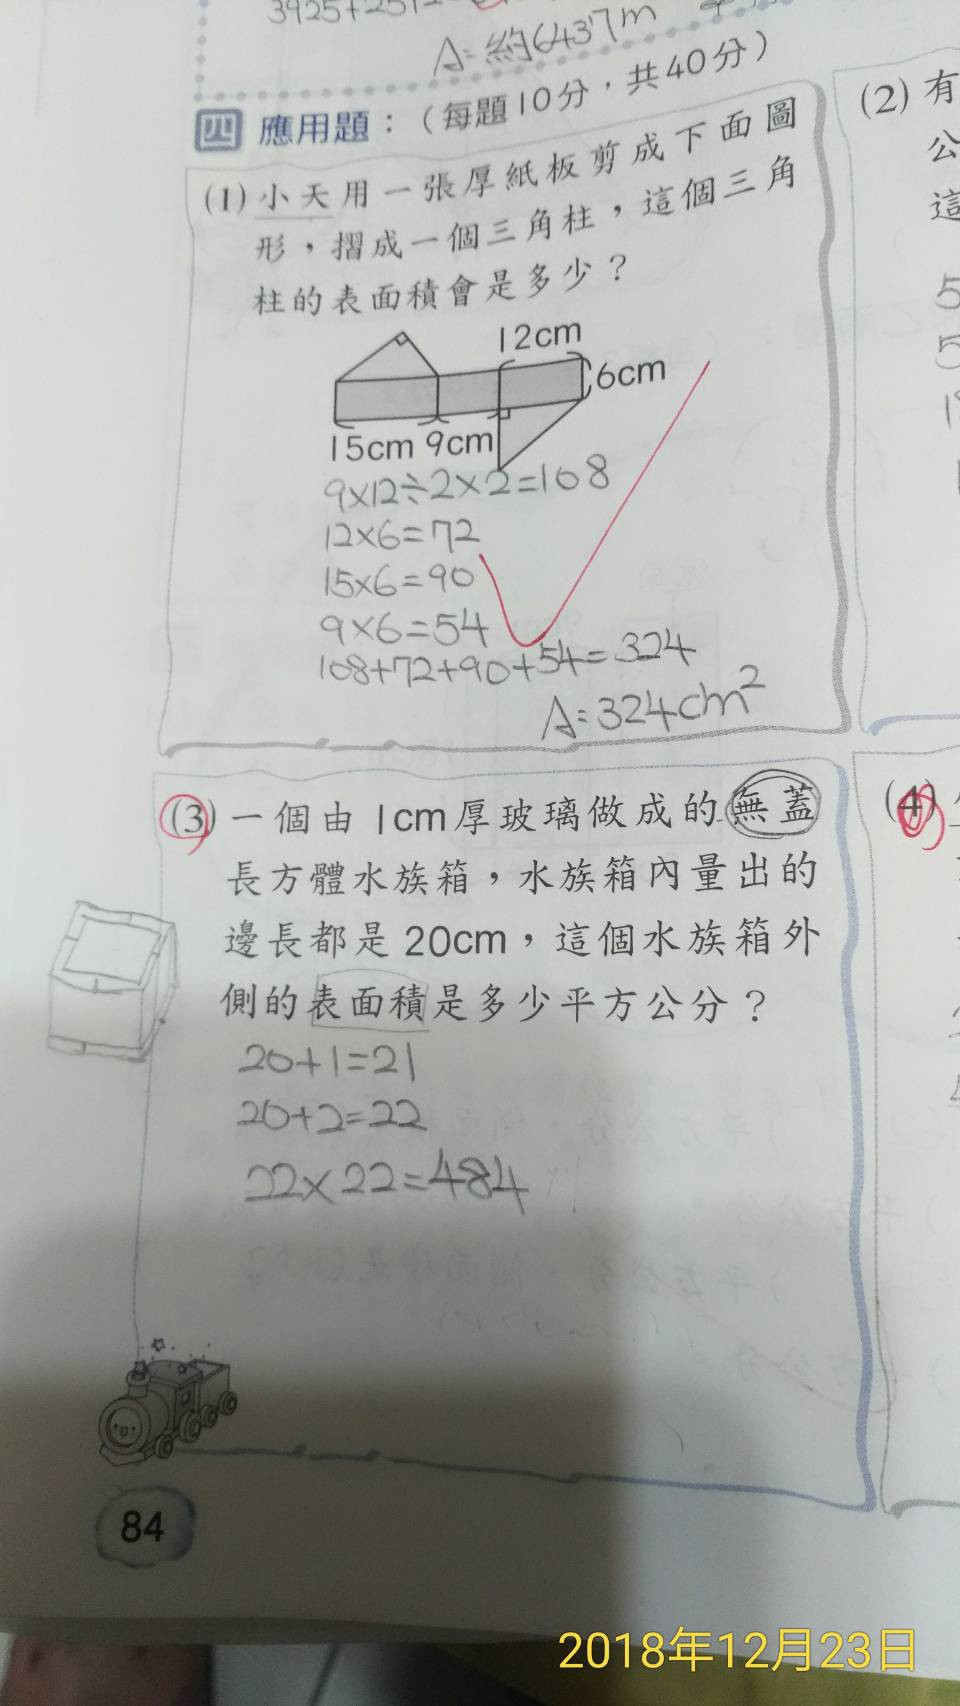 A:約6437m
四 應用題：（每題10分，共40分）
(1)小天用一張厚紙板剪成下面圖
形，摺成一個三角柱，這個三角
柱的表面積會是多少？
12cm
6cm
15cm 9cm
9×12÷2×2=108
12×6=72
15×6=90
9×6=54
108+72+90+54=324
A:324cm²
(2)有
公
這
(3)一個由1cm厚玻璃做成的無蓋
長方體水族箱，水族箱內量出的
邊長都是20cm，這個水族箱外
側的表面積是多少平方公分？
20+1=21
20+2=22
22×22=484
(4)
84
2018年12月23日